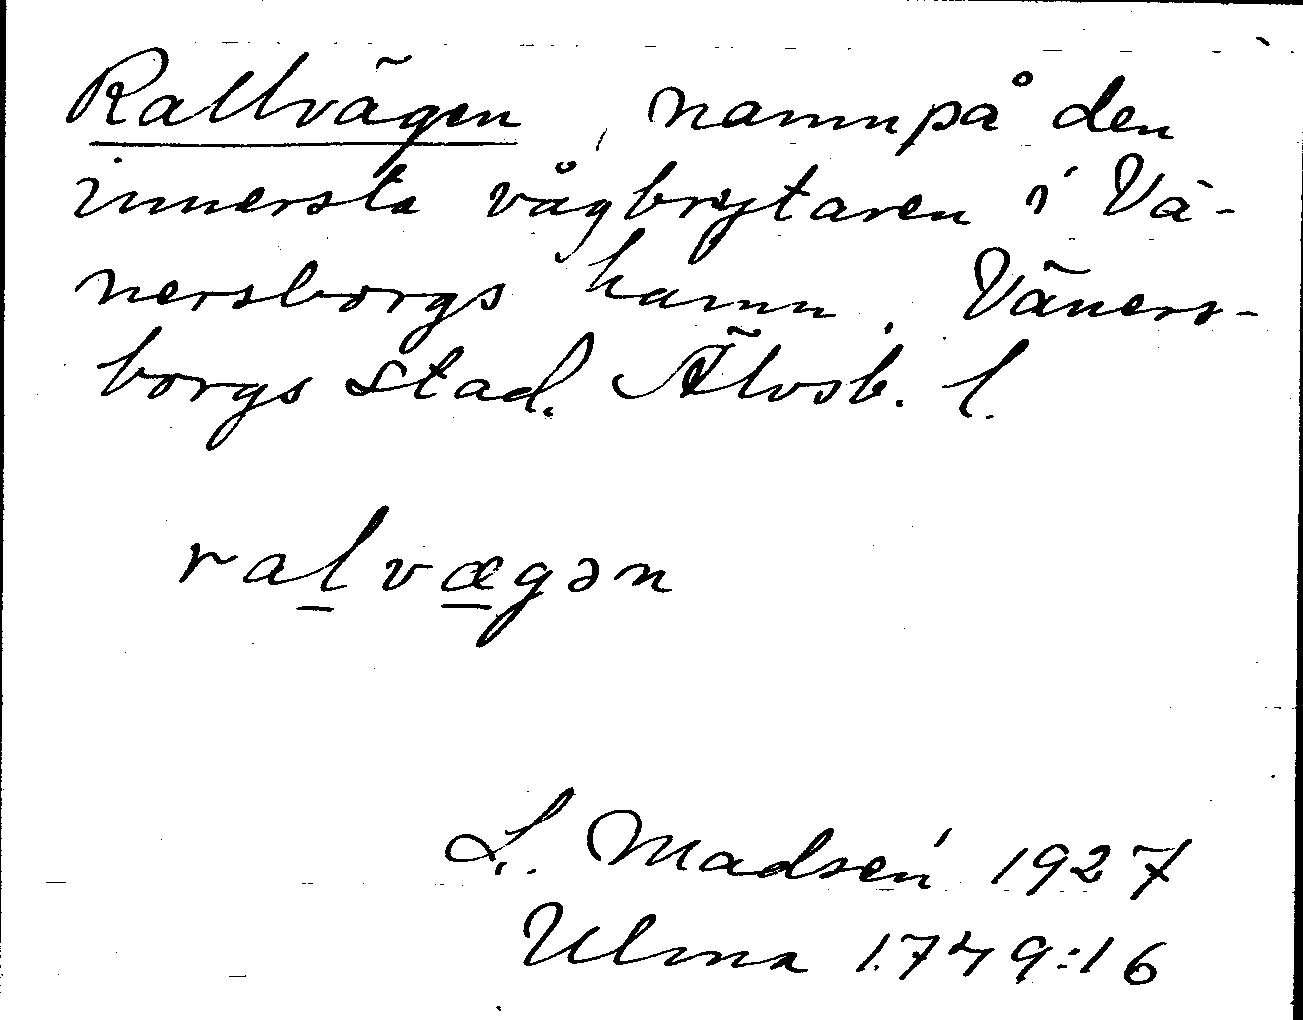 Rallvägen, namn på den
innersta vågbrytaren i Vä-
nersborgs hamn. Väners-
borgs stad. Älvsb. l.
ralvægən
L. Madsén 1927
Ulma 1749:16